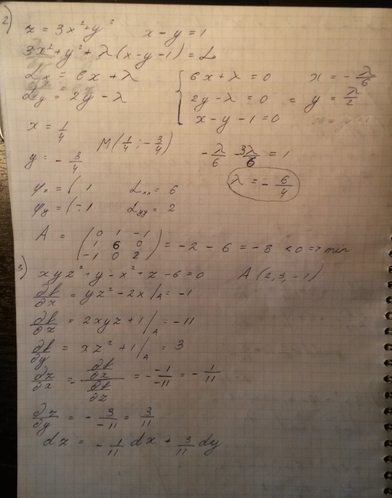 2) z = 3x² + y²   x - y = 1
3x² + y² + λ(x - y - 1) = L
Lx = 6x + λ
Ly = 2y - λ
{ 6x + λ = 0   x = -λ/6
2y - λ = 0 = y = λ/2
x - y - 1 = 0
x = 1/4
y = -3/4
M(1/4; -3/4)
-λ/6 - 3λ/6 = 1
λ = -6/4
φx = (1   Lxx = 6
φy = (-1   Lyy = 2
A = (0 1 -1
1 6 0
-1 0 2) = -2 - 6 = -8 < 0 => min
3) xyz² + y - x² + z - 6 = 0   A(2, 3, -1)
∂f/∂x = yz² - 2x |A = -1
∂f/∂z = 2xyz + 1 |A = -11
∂f/∂y = xz² + 1 |A = 3
∂z/∂x = - ∂f/∂x / ∂f/∂z = - -1/-11 = -1/11
∂z/∂y = - 3/-11 = 3/11
dz = -1/11 dx + 3/11 dy